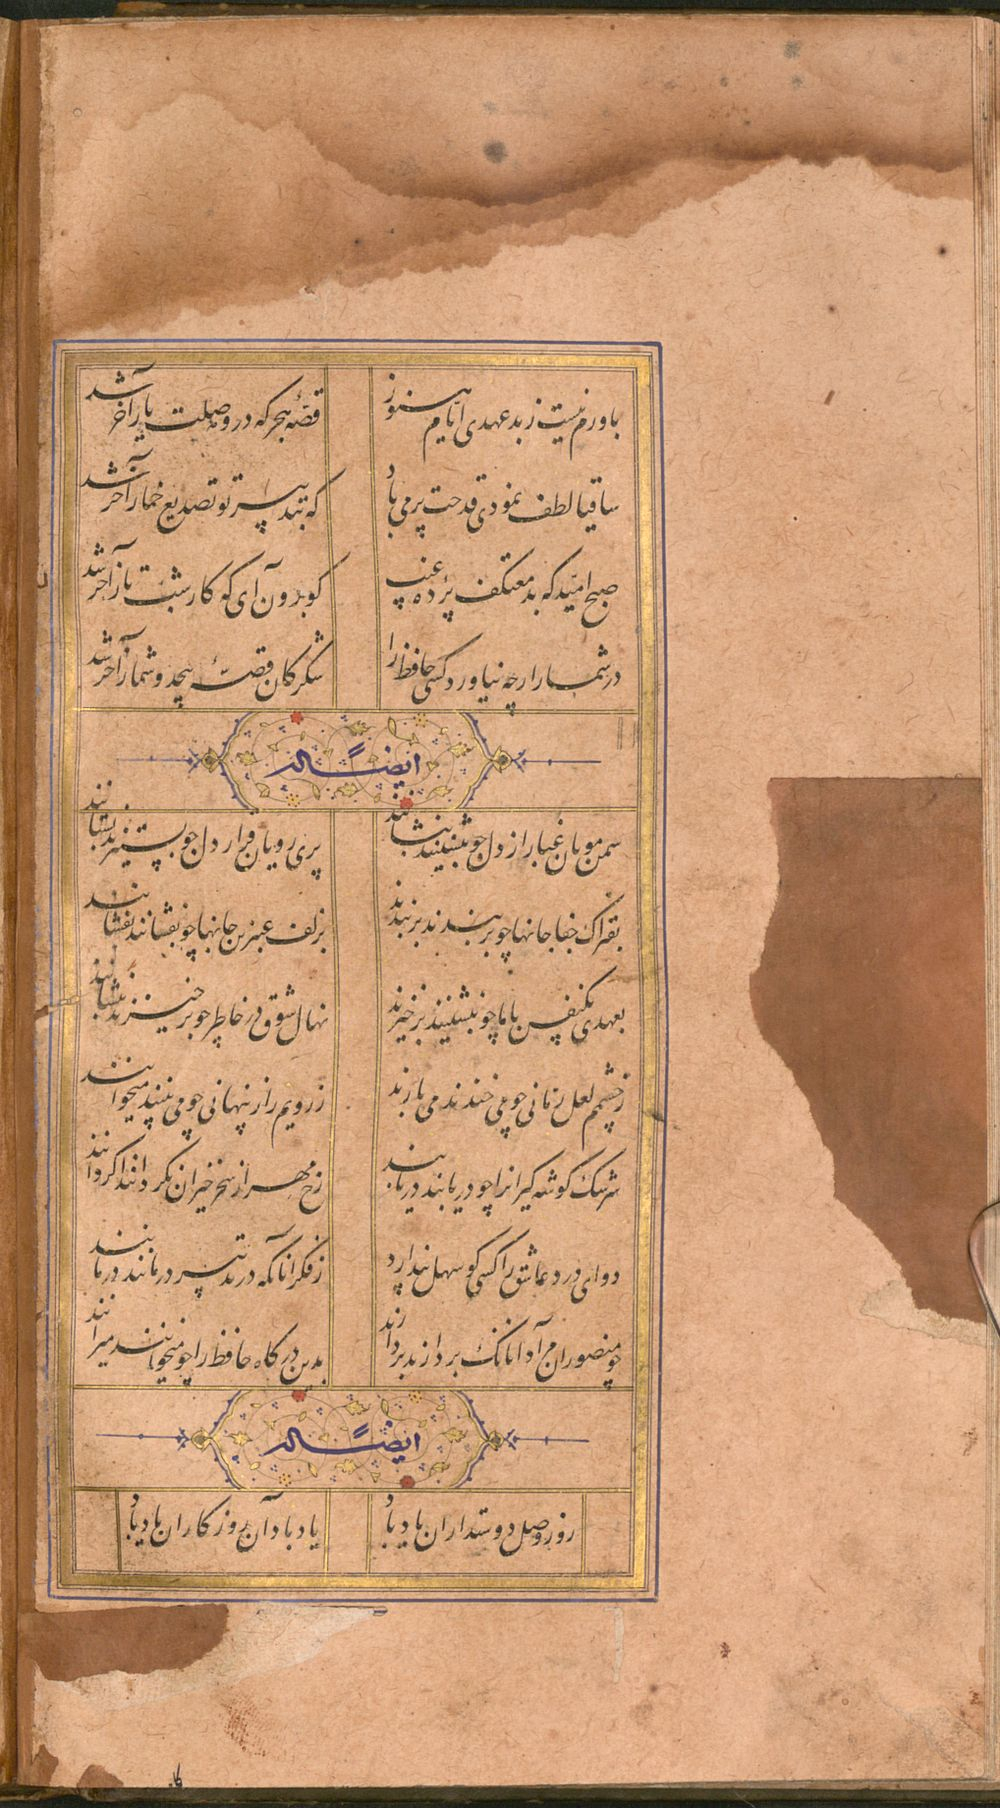 باورم نیست ز بد عهدی ایام هنوز
قصهٔ هجر که در وصلت یار آخر شد
ساقیا لطف نمودی قدحت پر می باد
که بتدبیر تو تصدیع خمار آخر شد
صبح امید که بد معتکف پردهٔ غیب
کو برون آی که کار شب تار آخر شد
در شمار ار چه نیاورد کسی حافظ را
شکر کان قصهٔ بیحد و شمار آخر شد
ایضاً له
سمن مویان غبار از دل چو بنشینند بنشانند
پری رویان قرار دل چو بستیزند بستانند
بفتراک جفا جانها چو بربندند بربندند
بزلف عنبرین جانها چو بفشانند بفشانند
بعهدی یکنفس با ما چو بنشینند برخیزند
نهال شوق در خاطر چو برخیزند بنشانند
ز چشمم لعل رمانی چو می خندند می بارند
ز رویم راز پنهانی چو می بینند میخوانند
سرشک گوشه گیرانرا چو دریابند دریابند
رخ مهر از سحرخیزان نگردانند اگر دانند
دوای درد عاشق را کسی کو سهل پندارد
ز فکر آنانکه در تدبیر درمانند درمانند
چو منصور از مراد آنانک بردارند بردارند
بدین درگاه حافظ را چو میخوانند میرانند
ایضاً له
روز وصل دوستداران یاد باد
یاد باد آن روزگاران یاد باد